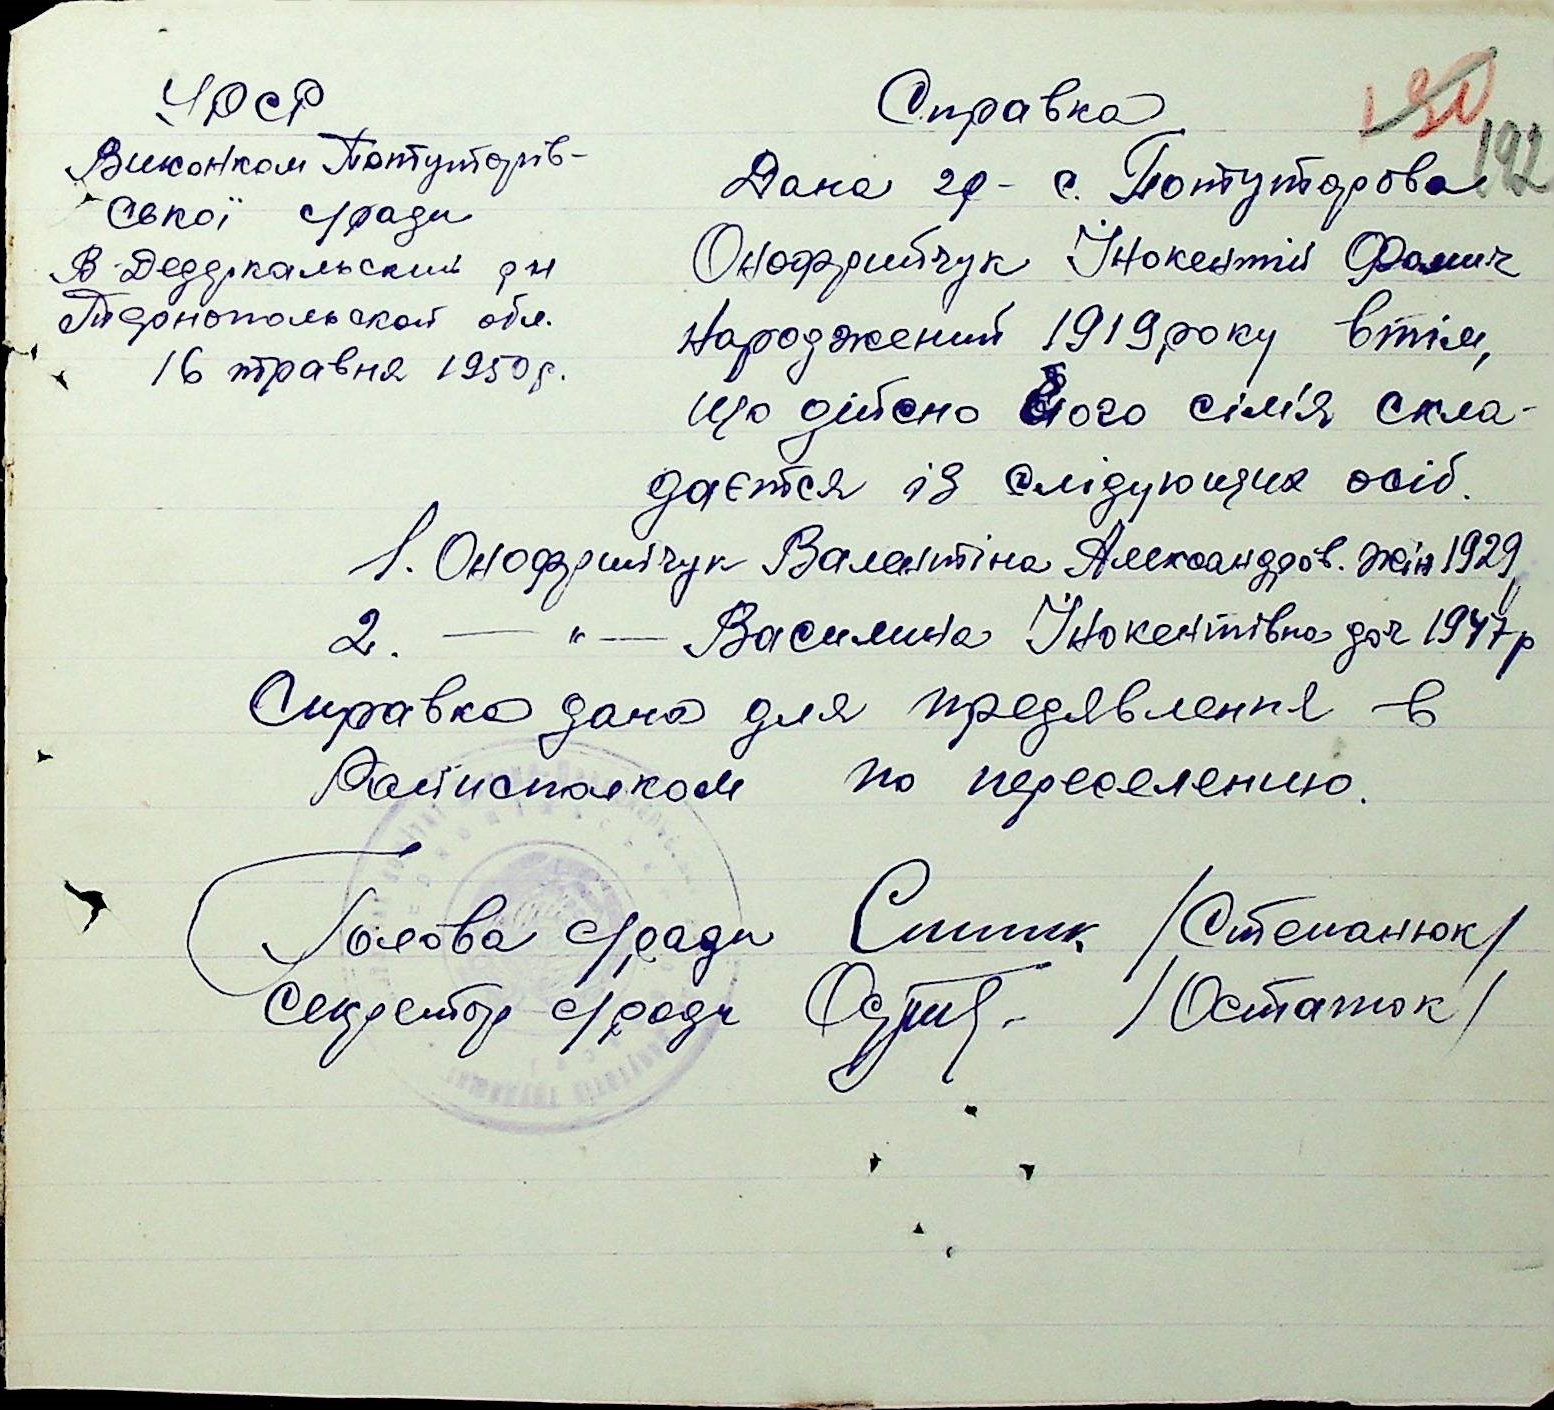 УРСР
Виконком Потуторів-
ської с/ради
В-Дедеркальский рн
Тернопольской обл.
16 травня 1950 р.
Справка
130
192
Дана гр- с. Потуторова
Онофрийчук Інокентий Фомич
народжений 1919 року втім,
що дійсно його сімія скла-
дается із слідующих осіб.
1. Онофрийчук Валентіна Александров. жін 1929
2. —— " —— Василина Інокентівна доч 1947 р
Справка дана для предявлення в
Райисполком по переселению.
Голова с/ради /Степанюк/
Секретар с/ради /Остапюк/